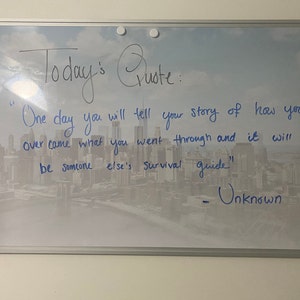 Today's Quote:
"One day you will tell your story of how you
over came what you went through and it will
be someone else's survival guide"
- Unknown